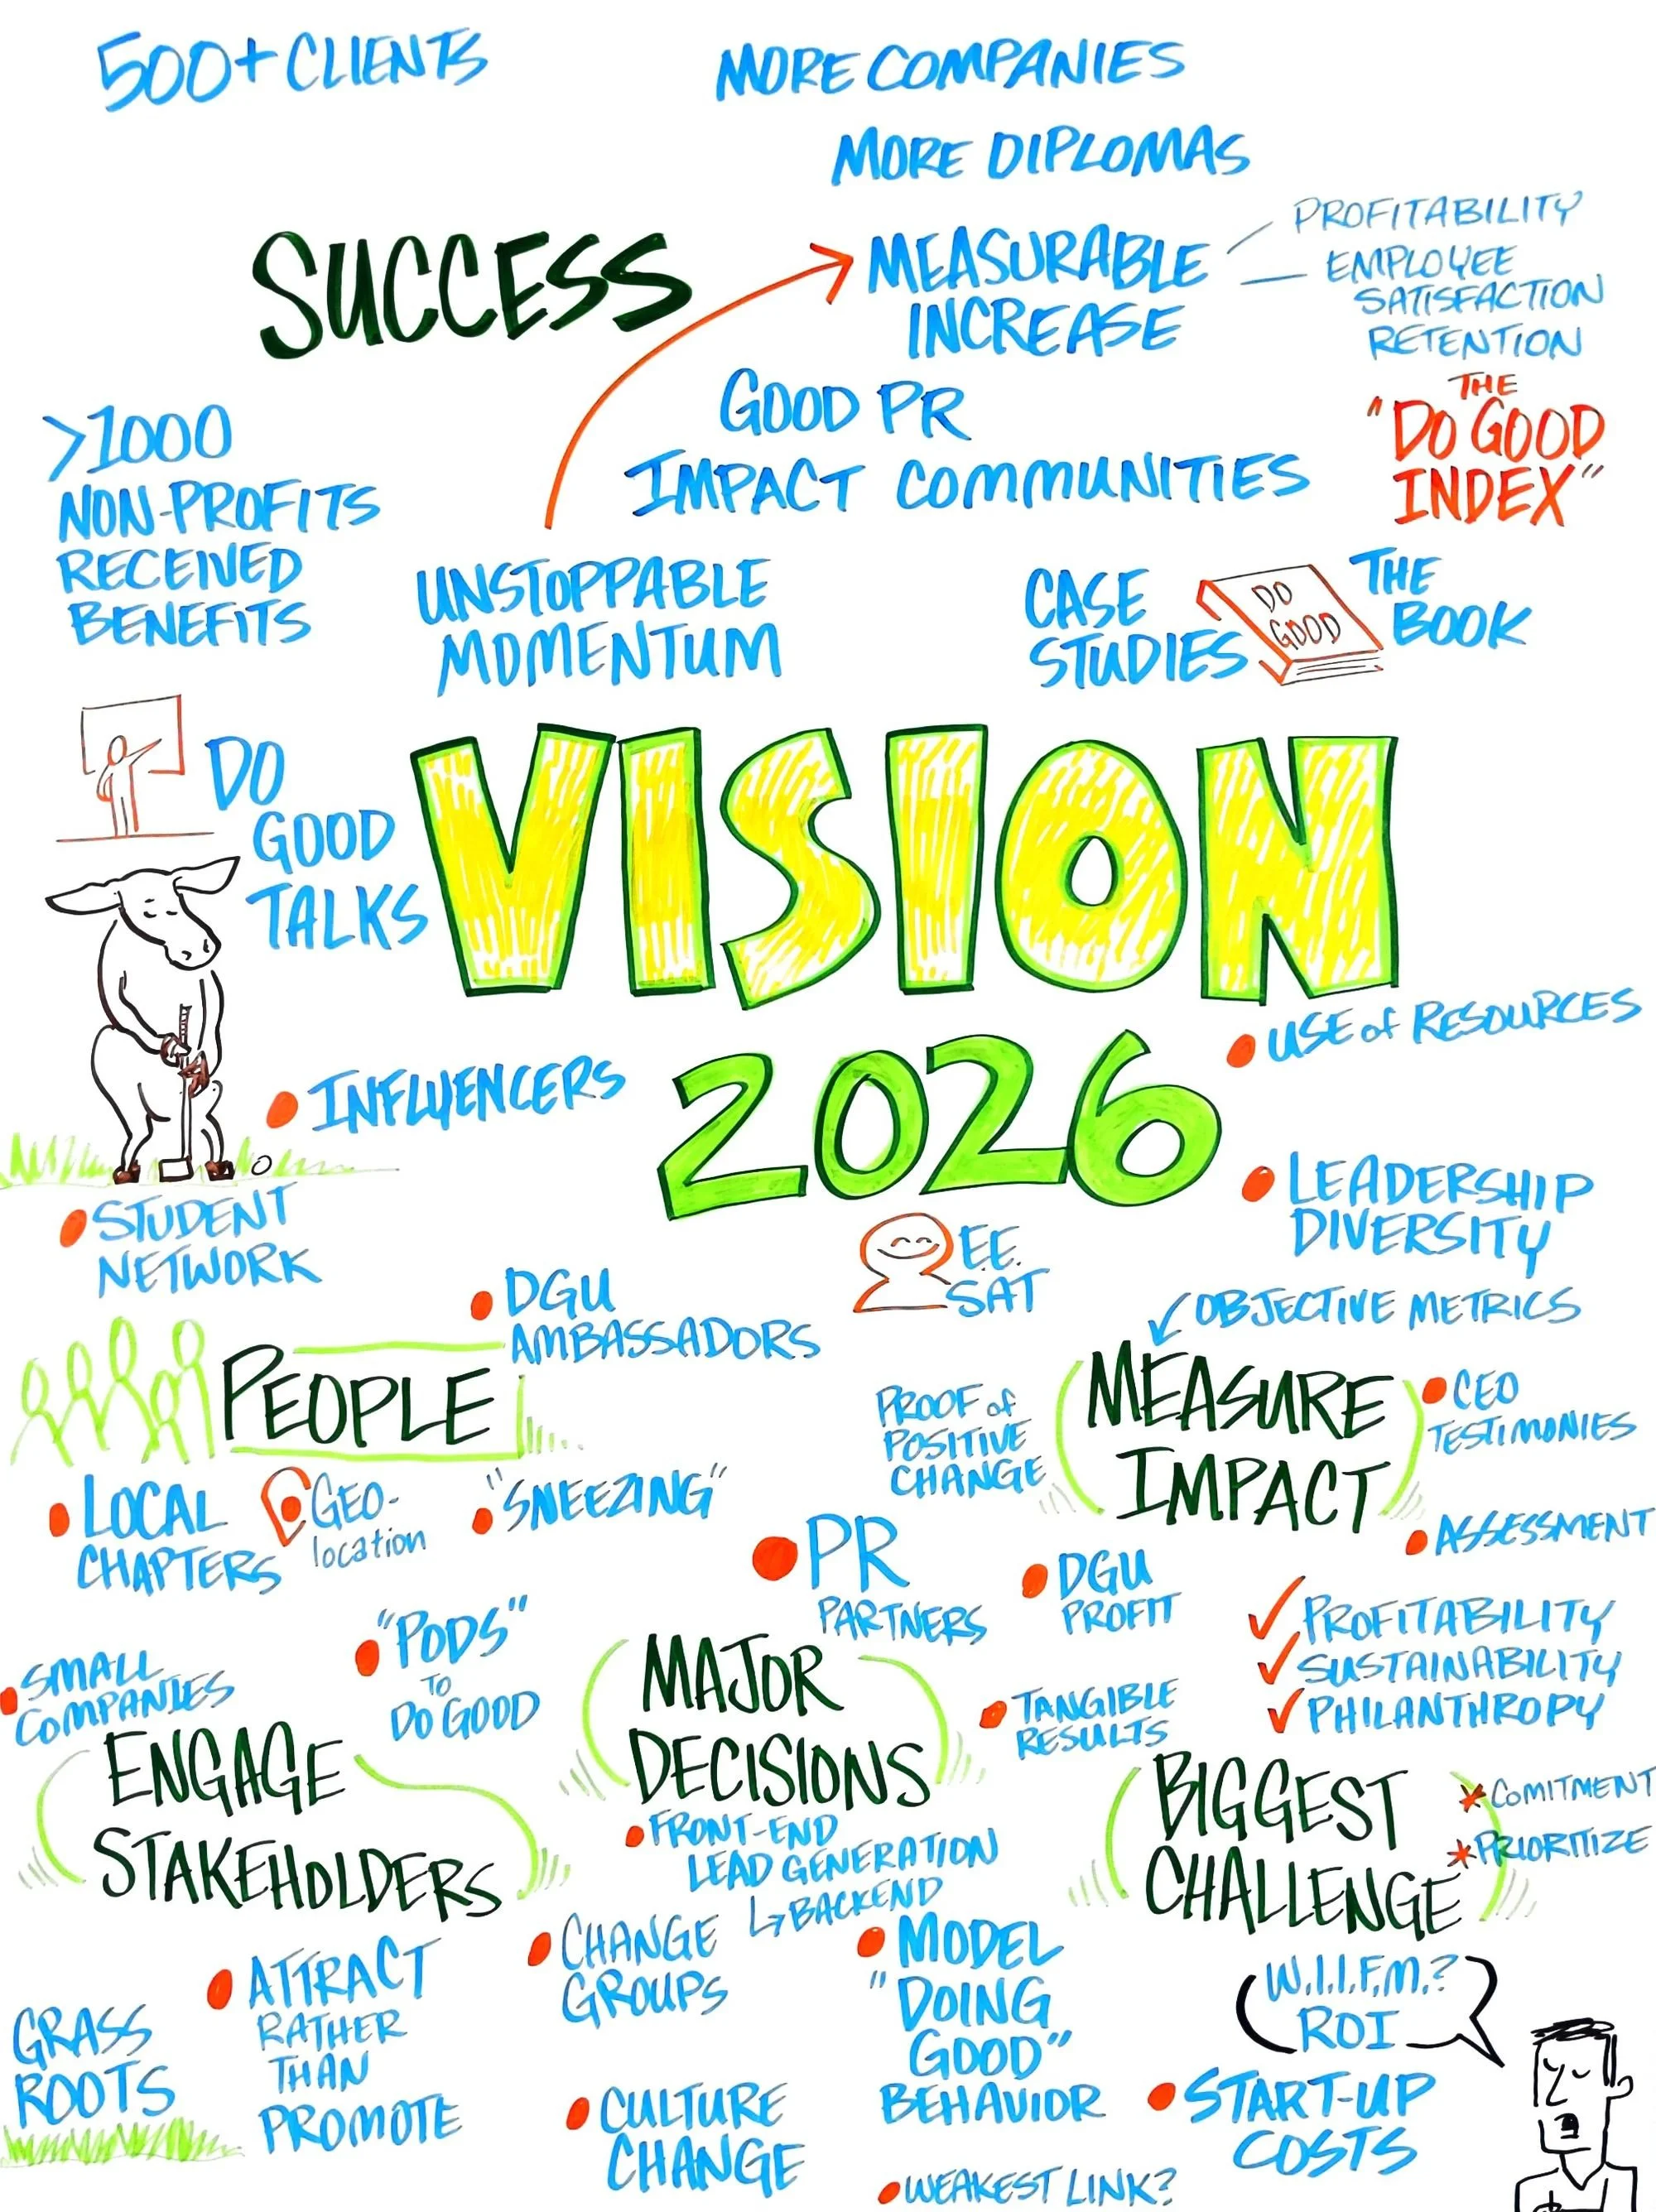 500+ CLIENTS
MORE COMPANIES
MORE DIPLOMAS
SUCCESS
MEASURABLE
INCREASE
PROFITABILITY
EMPLOYEE
SATISFACTION
RETENTION
GOOD PR
IMPACT COMMUNITIES
THE
"DO GOOD
INDEX"
>1000
NON-PROFITS
RECEIVED
BENEFITS
UNSTOPPABLE
MOMENTUM
CASE
STUDIES
DO
GOOD
THE
BOOK
DO
GOOD
TALKS
VISION
2026
USE of RESOURCES
INFLUENCERS
LEADERSHIP
DIVERSITY
STUDENT
NETWORK
E.E.
SAT
DGU
AMBASSADORS
OBJECTIVE METRICS
PEOPLE
PROOF of
POSITIVE
CHANGE
MEASURE
IMPACT
CEO
TESTIMONIES
LOCAL
CHAPTERS
GEO-
location
"SNEEZING"
PR
PARTNERS
DGU
PROFIT
ASSESSMENT
✓ PROFITABILITY
✓ SUSTAINABILITY
✓ PHILANTHROPY
SMALL
COMPANIES
"PODS"
TO
DO GOOD
MAJOR
DECISIONS
TANGIBLE
RESULTS
ENGAGE
STAKEHOLDERS
FRONT-END
LEAD GENERATION
↳ BACKEND
BIGGEST
CHALLENGE
* COMITMENT
* PRIORITIZE
GRASS
ROOTS
ATTRACT
RATHER
THAN
PROMOTE
CHANGE
GROUPS
CULTURE
CHANGE
MODEL
"DOING
GOOD"
BEHAVIOR
W.I.I.F.M.?
ROI
START-UP
COSTS
WEAKEST LINK?